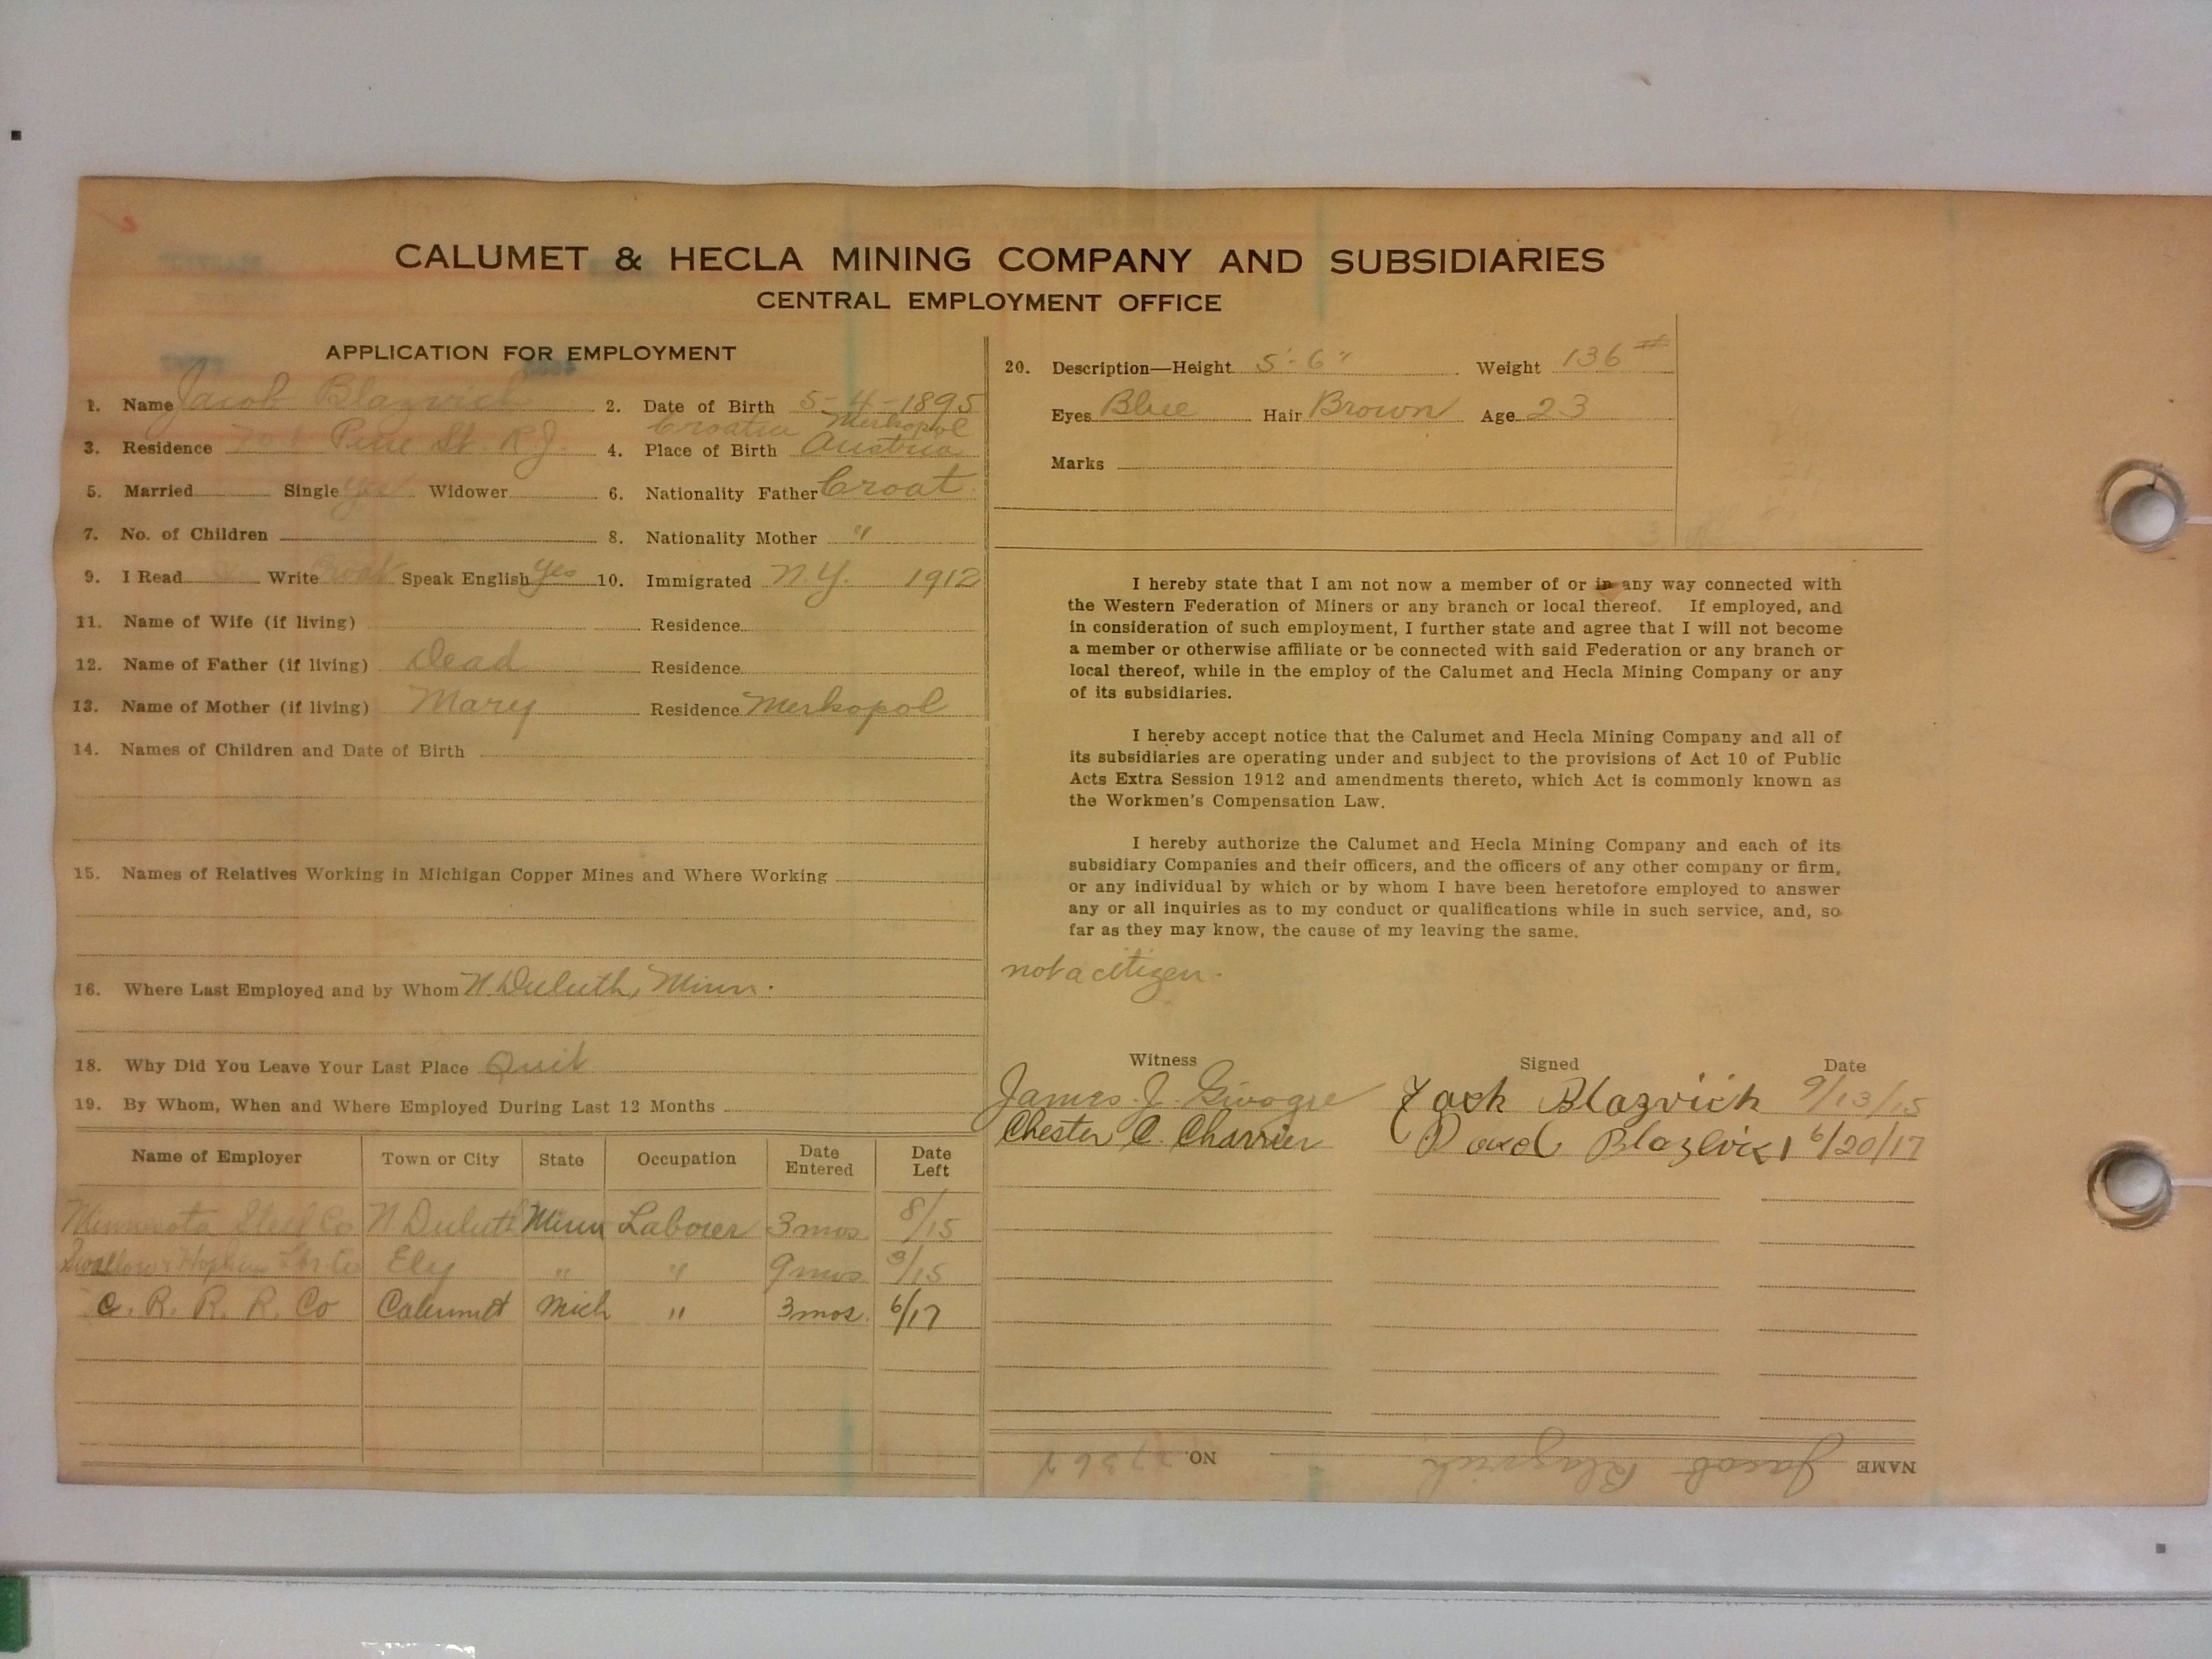 CALUMET & HECLA MINING COMPANY AND SUBSIDIARIES
CENTRAL EMPLOYMENT OFFICE
APPLICATION FOR EMPLOYMENT
1. Name Jacob Blazvich 2. Date of Birth 5-4-1895
Croatia Merkopol
3. Residence 701 Pine St. R.J. 4. Place of Birth Austria
5. Married Single yes Widower 6. Nationality Father Croat
7. No. of Children 8. Nationality Mother "
9. I Read Write Croat Speak English yes 10. Immigrated N.Y. 1912
11. Name of Wife (if living) Residence
12. Name of Father (if living) Dead Residence
13. Name of Mother (if living) Mary Residence Merkopol
14. Names of Children and Date of Birth
15. Names of Relatives Working in Michigan Copper Mines and Where Working
16. Where Last Employed and by Whom N. Duluth, Minn.
18. Why Did You Leave Your Last Place Quit
19. By Whom, When and Where Employed During Last 12 Months
Name of Employer Town or City State Occupation Date Entered Date Left
Minnesota Steel Co N. Duluth Minn Laborer 3 mos. 8/15
Swallow & Hopkins Lbr. Co Ely " " 9 mos. 3/15
C. R. R. R. Co Calumet Mich " 3 mos. 6/17
20. Description—Height 5'-6" Weight 136#
Eyes Blue Hair Brown Age 23
Marks
I hereby state that I am not now a member of or in any way connected with
the Western Federation of Miners or any branch or local thereof. If employed, and
in consideration of such employment, I further state and agree that I will not become
a member or otherwise affiliate or be connected with said Federation or any branch or
local thereof, while in the employ of the Calumet and Hecla Mining Company or any
of its subsidiaries.
I hereby accept notice that the Calumet and Hecla Mining Company and all of
its subsidiaries are operating under and subject to the provisions of Act 10 of Public
Acts Extra Session 1912 and amendments thereto, which Act is commonly known as
the Workmen's Compensation Law.
I hereby authorize the Calumet and Hecla Mining Company and each of its
subsidiary Companies and their officers, and the officers of any other company or firm,
or any individual by which or by whom I have been heretofore employed to answer
any or all inquiries as to my conduct or qualifications while in such service, and, so
far as they may know, the cause of my leaving the same.
not a citizen.
Witness Signed Date
James J. Blazvich 9/13/15
Chester C. Charrier Blazlvick 6/20/17
NAME Jacob Blazvich NO.